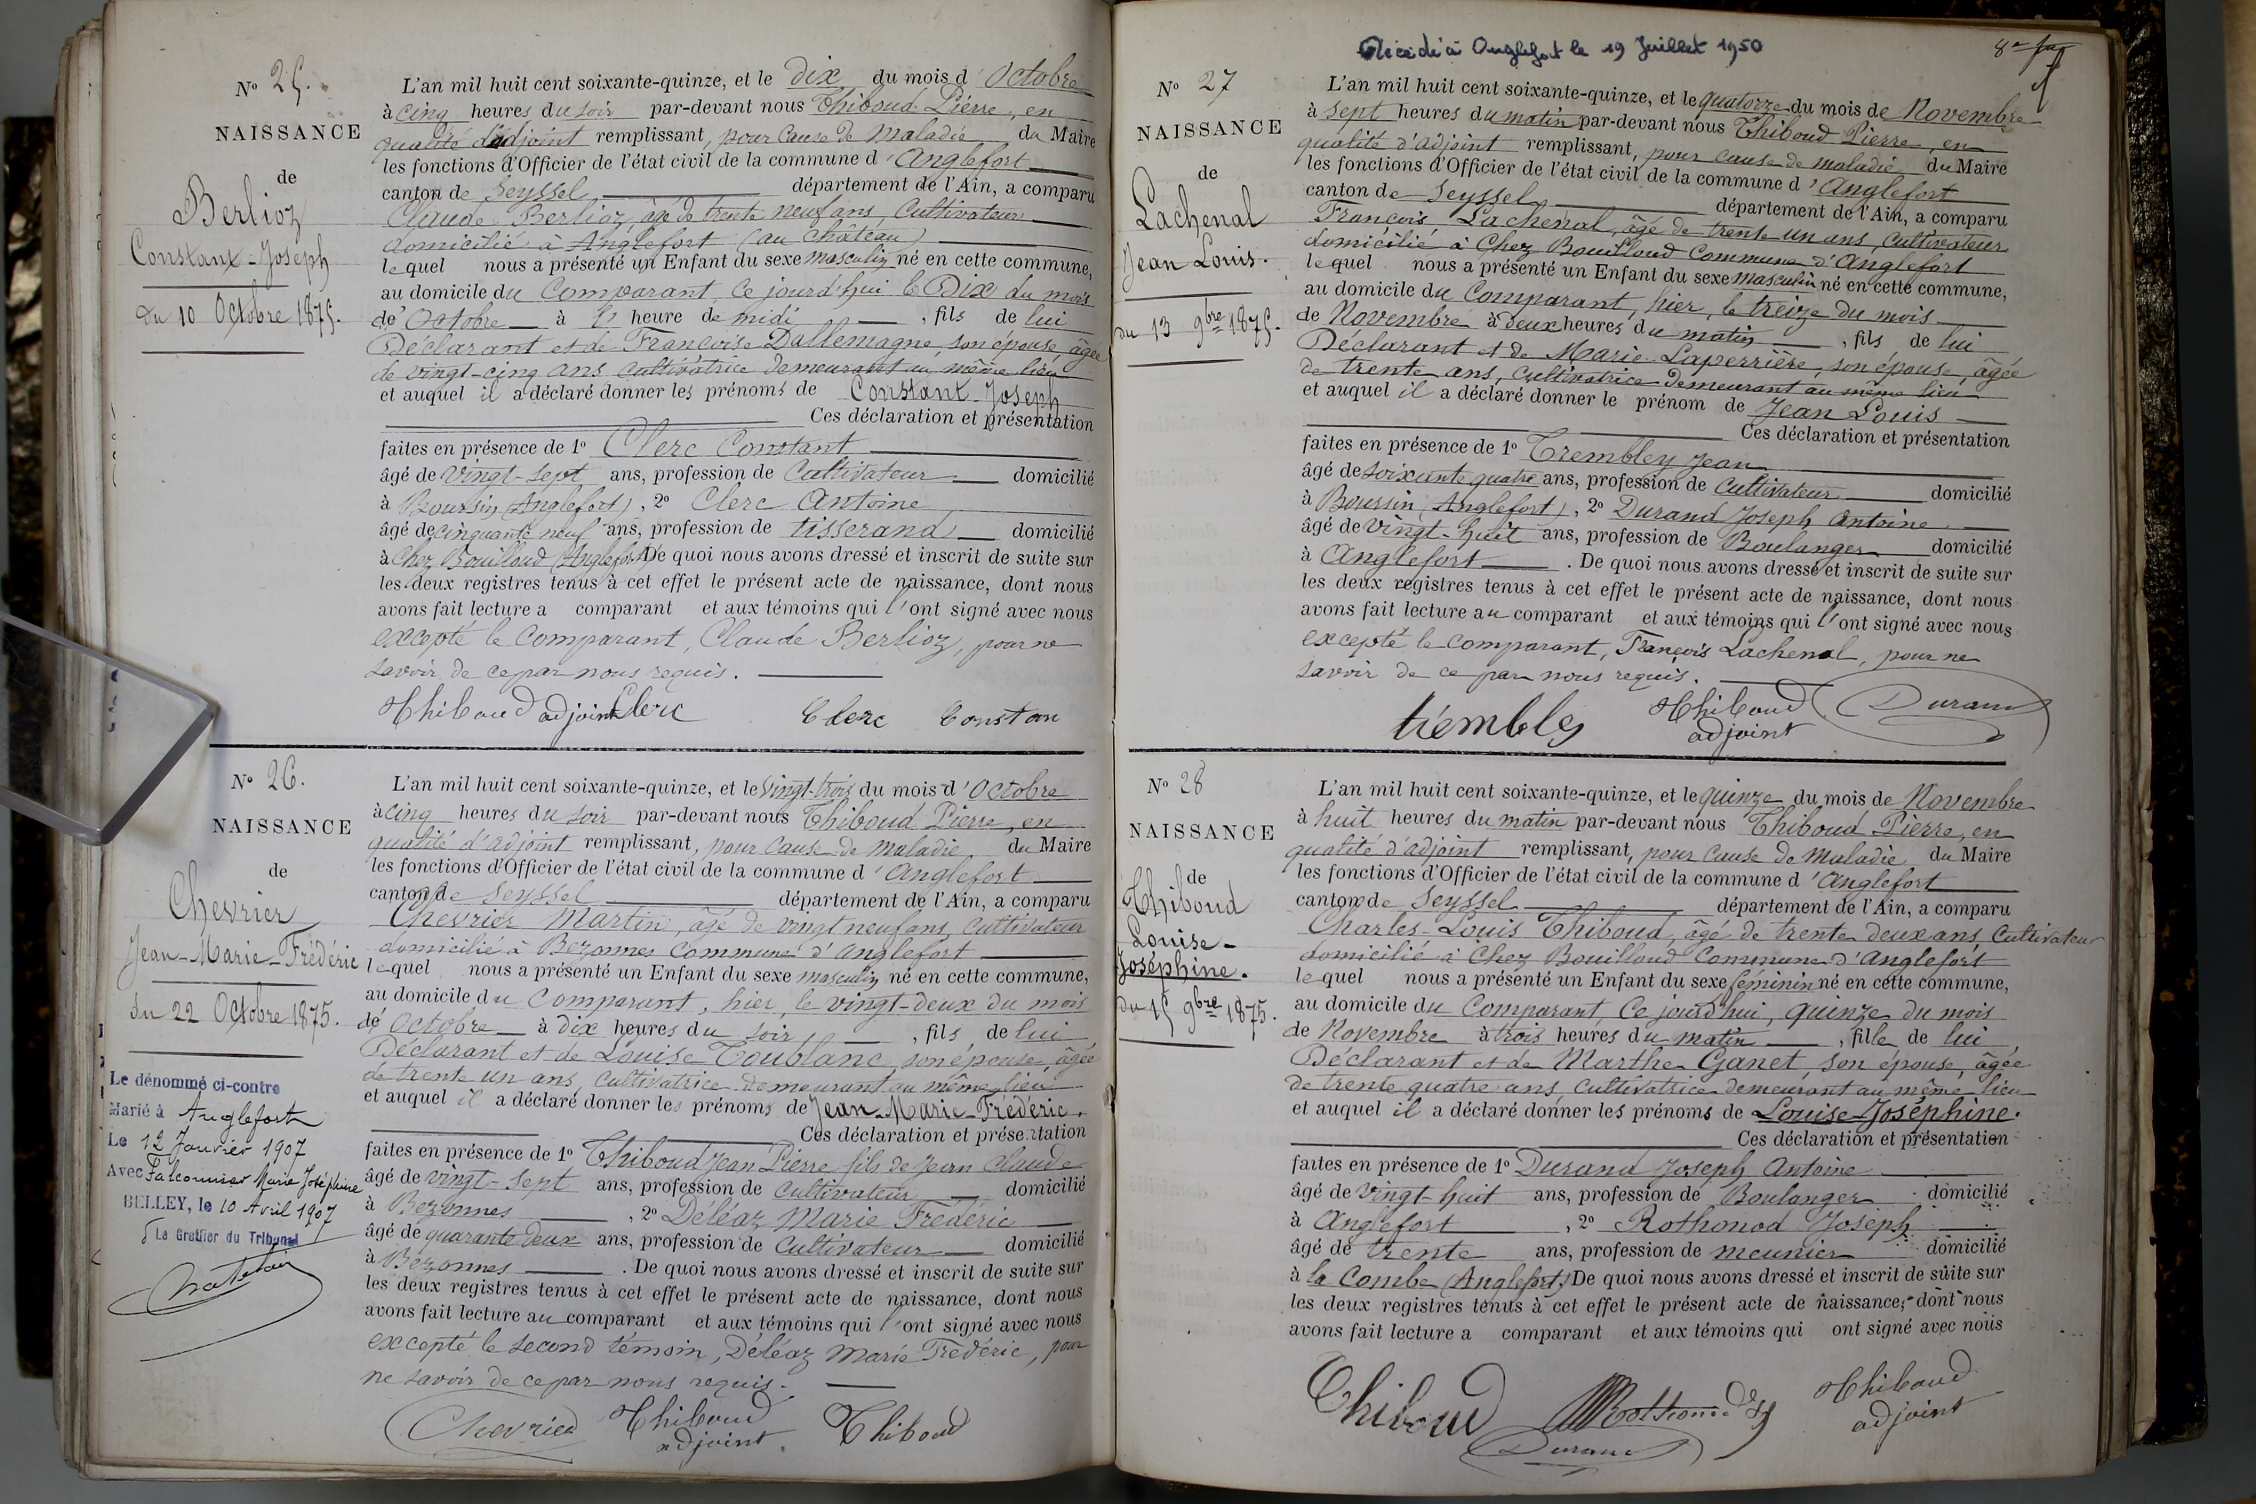 Nº 25.
NAISSANCE
de
Berlioz
Constant-Joseph
du 10 Octobre 1875.
L'an mil huit cent soixante-quinze, et le dix du mois d'Octobre
à cinq heures du soir par-devant nous Thiboud Pierre, en
qualité d'adjoint remplissant, pour cause de maladie du Maire
les fonctions d'Officier de l'état civil de la commune d'Anglefort
canton de Seyssel département de l'Ain, a comparu
Claude Berlioz, âgé de trente neuf ans, Cultivateur
domicilié à Anglefort (au château)
lequel nous a présenté un Enfant du sexe masculin né en cette commune,
au domicile du Comparant, ce jourd'hui le Dix du mois
de Octobre à heure de midi, fils de lui
Déclarant et de Françoise Dallemagne, son épouse, âgée
de vingt-cinq ans cultivatrice demeurant au même lieu
et auquel il a déclaré donner les prénoms de Constant-Joseph
Ces déclaration et présentation
faites en présence de 1º Clerc Constant
âgé de vingt-sept ans, profession de Cultivateur domicilié
à Boursin (Anglefort), 2º Clerc Antoine
âgé de cinquante neuf ans, profession de tisserand domicilié
à Chez Bouilloud (Anglefort) De quoi nous avons dressé et inscrit de suite sur
les deux registres tenus à cet effet le présent acte de naissance, dont nous
avons fait lecture a comparant et aux témoins qui l'ont signé avec nous
excepté le Comparant, Claude Berlioz, pour ne
savoir de ce par nous requis.
Thiboud adjoint Clerc Clerc Constan
Nº 26.
NAISSANCE
de
Chevrier
Jean-Marie-Frédéric
du 22 Octobre 1875.
Le dénommé ci-contre
Marié à Anglefort
Le 12 Janvier 1907
Avec Falconnier Marie Joséphine
BELLEY, le 10 Avril 1907
Le Greffier du Tribunal
L'an mil huit cent soixante-quinze, et le vingt-trois du mois d'Octobre
à cinq heures du soir par-devant nous Thiboud Pierre, en
qualité d'adjoint remplissant, pour cause de maladie du Maire
les fonctions d'Officier de l'état civil de la commune d'Anglefort
canton de Seyssel département de l'Ain, a comparu
Chevrier Martin, âgé de vingt neuf ans, Cultivateur
domicilié à Bezonnes Commune d'Anglefort
lequel nous a présenté un Enfant du sexe masculin né en cette commune,
au domicile du Comparant, hier, le vingt-deux du mois
de Octobre à dix heures du soir, fils de lui
Déclarant et de Louise Toublanc, son épouse, âgée
de trente un ans, cultivatrice demeurant au même lieu
et auquel il a déclaré donner les prénoms de Jean-Marie-Frédéric.
Ces déclaration et présentation
faites en présence de 1º Thiboud Jean Pierre fils de Jean Claude
âgé de vingt-sept ans, profession de cultivateur domicilié
à Bezonnes, 2º Deléaz Marie Frédéric
âgé de quarante deux ans, profession de Cultivateur domicilié
à Bezonnes. De quoi nous avons dressé et inscrit de suite sur
les deux registres tenus à cet effet le présent acte de naissance, dont nous
avons fait lecture au comparant et aux témoins qui l'ont signé avec nous
excepté le second témoin, Déléaz Marie Frédéric, pour
ne savoir de ce par nous requis.
Chevrier Thiboud adjoint. Thiboud
Décédé à Anglefort le 19 Juillet 1950
Nº 27
NAISSANCE
de
Lachenal
Jean Louis.
du 13 9bre 1875.
L'an mil huit cent soixante-quinze, et le quatorze du mois de Novembre
à sept heures du matin par-devant nous Thiboud Pierre, en
qualité d'adjoint remplissant, pour cause de maladie du Maire
les fonctions d'Officier de l'état civil de la commune d'Anglefort
canton de Seyssel département de l'Ain, a comparu
François Lachenal, âgé de trente un ans, cultivateur
domicilié à Chez Bouilloud Commune d'Anglefort
lequel nous a présenté un Enfant du sexe masculin né en cette commune,
au domicile du Comparant, hier, le treize du mois
de Novembre à deux heures du matin, fils de lui
Déclarant et de Marie Laperrière, son épouse, âgée
de trente ans, cultivatrice demeurant au même lieu
et auquel il a déclaré donner le prénom de Jean Louis
Ces déclaration et présentation
faites en présence de 1º Trembley Jean
âgé de soixante quatre ans, profession de Cultivateur domicilié
à Boursin (Anglefort), 2º Durand Joseph Antoine
âgé de vingt-huit ans, profession de Boulanger domicilié
à Anglefort. De quoi nous avons dressé et inscrit de suite sur
les deux registres tenus à cet effet le présent acte de naissance, dont nous
avons fait lecture au comparant et aux témoins qui l'ont signé avec nous
excepté le comparant, François Lachenal, pour ne
savoir de ce par nous requis.
trembley Thiboud adjoint Durand
Nº 28
NAISSANCE
de
Thiboud
Louise-
Joséphine.
du 15 9bre 1875.
L'an mil huit cent soixante-quinze, et le quinze du mois de Novembre
à huit heures du matin par-devant nous Thiboud Pierre, en
qualité d'adjoint remplissant, pour cause de maladie du Maire
les fonctions d'Officier de l'état civil de la commune d'Anglefort
canton de Seyssel département de l'Ain, a comparu
Charles-Louis Thiboud, âgé de trente deux ans, Cultivateur
domicilié à Chez Bouilloud Commune d'Anglefort
lequel nous a présenté un Enfant du sexe féminin né en cette commune,
au domicile du Comparant, ce jourd'hui, quinze du mois
de Novembre à trois heures du matin, fille de lui
Déclarant et de Marthe Ganet, son épouse, âgée
de trente quatre ans, cultivatrice demeurant au même lieu
et auquel il a déclaré donner les prénoms de Louise-Joséphine.
Ces déclaration et présentation
faites en présence de 1º Durand Joseph Antoine
âgé de vingt-huit ans, profession de Boulanger domicilié
à Anglefort, 2º Rothonod Joseph
âgé de trente ans, profession de meunier domicilié
à la Combe (Anglefort) De quoi nous avons dressé et inscrit de suite sur
les deux registres tenus à cet effet le présent acte de naissance, dont nous
avons fait lecture a comparant et aux témoins qui ont signé avec nous
Thiboud Rothonod Thiboud adjoint
Durand